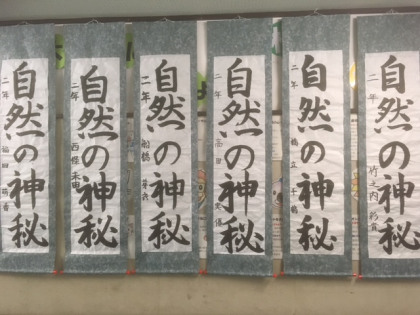 自然の神秘
二年
自然の神秘
二年 西條
自然の神秘
二年
自然の神秘
二年 高田
自然の神秘
二年
自然の神秘
二年 竹之内